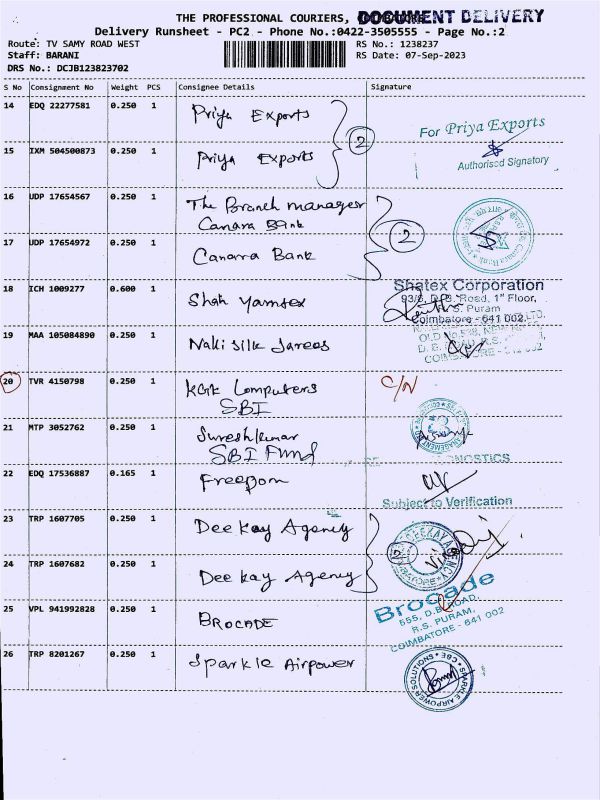 THE PROFESSIONAL COURIERS,
DOCUMENT DELIVERY
Delivery Runsheet - PC2 - Phone No.:0422-3505555 - Page No.:2
Route: TV SAMY ROAD WEST
RS No.: 1238237
Staff: BARANI
RS Date: 07-Sep-2023
DRS No.: DCJB123823702
S No Consignment No Weight PCS Consignee Details Signature
14 EDQ 22277581 0.250 1 Priya Exports
2
For Priya Exports
Authorised Signatory
15 IXM 504500873 0.250 1 Priya Exports
16 UDP 17654567 0.250 1 The Branch manager
Canara Bank
2
17 UDP 17654972 0.250 1 Canara Bank
18 ICH 1009277 0.600 1 Shah
Shatex Corporation
93/6, D.B. Road, 1st Floor,
R.S. Puram
Coimbatore - 641 002.
19 MAA 105084890 0.250 1 Naki Silk Sarees
20 TVR 4150798 0.250 1 KGK Computers
SBI
C/N
21 MTP 3052762 0.250 1 Sureshkumar
SBI Fund
22 EDQ 17536887 0.165 1 Freedom
Subject to Verification
23 TRP 1607705 0.250 1 Dee kay Agency
2
24 TRP 1607682 0.250 1 Dee kay Agency
25 VPL 941992828 0.250 1 BROCADE
Brocade
555, D.B. ROAD,
R.S. PURAM,
COIMBATORE - 641 002
26 TRP 8201267 0.250 1 Sparkle Airpower
SPARKLE AIRPOWER SOLUTIONS * CBE *